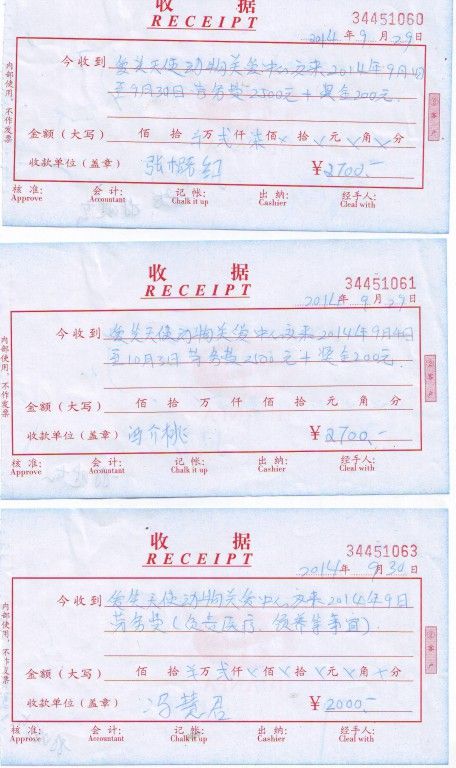 收 据
RECEIPT
34451060
2014 年 9 月 29 日
今收到 爱笑天使动物关爱中心支来2014年9月4日
至9月30日劳务费2500元+奖金200元.
金额（大写） 佰 拾 万 贰仟 柒佰 拾 元 角 分
收款单位（盖章） ¥2700.-
核 准: Approve
会 计: Accountant
记 帐: Chalk it up
出 纳: Cashier
经手人: Cleal with
内部使用，不作发票
②客户
收 据
RECEIPT
34451061
2014 年 9 月 29 日
今收到 爱笑天使动物关爱中心支来2014年9月4日
至10月3日劳务费2500元+奖金200元.
金额（大写） 佰 拾 万 仟 佰 拾 元 角 分
收款单位（盖章） 冯介桃 ¥2700.-
核 准: Approve
会 计: Accountant
记 帐: Chalk it up
出 纳: Cashier
经手人: Cleal with
内部使用，不作发票
②客户
收 据
RECEIPT
34451063
2014 年 9 月 30 日
今收到 爱笑天使动物关爱中心支来2014年9月
劳务费(负责医疗、领养等事宜).
金额（大写） 佰 拾 万 贰仟 佰 拾 元 角 分
收款单位（盖章） 冯慧君 ¥2000.-
核 准: Approve
会 计: Accountant
记 帐: Chalk it up
出 纳: Cashier
经手人: Cleal with
内部使用，不作发票
②客户